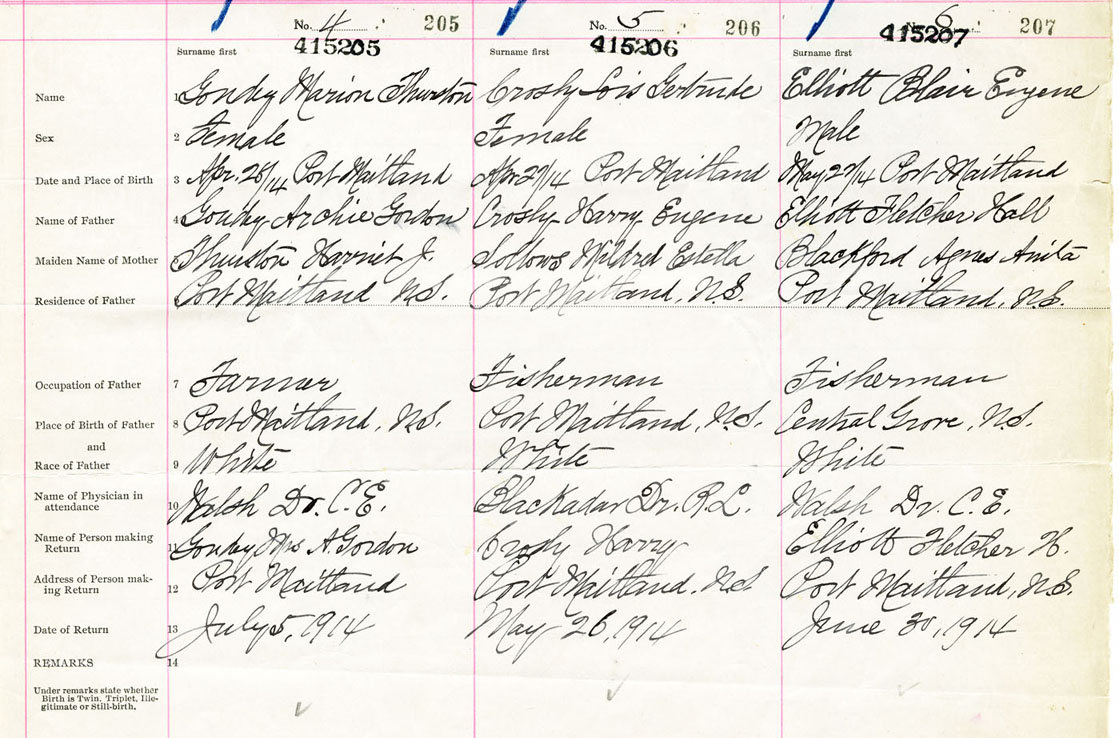 No. 4 205 No. 5 206 No. 6 207
415205 415206 415207
Surname first Surname first Surname first
Name 1 Goudey Marion Thurston Crosby Lois Gertrude Elliott Blair Eugene
Sex 2 Female Female Male
Date and Place of Birth 3 Apr. 26/14 Port Maitland Apr 27/14 Port Maitland May 27/14 Port Maitland
Name of Father 4 Goudey Archie Gordon Crosby Harry Eugene Elliott Fletcher Hall
Maiden Name of Mother 5 Thurston Harriet J. Sollows Mildred Estella Blackford Agnes Anita
Residence of Father Port Maitland N.S. Port Maitland, N.S. Port Maitland, N.S.
Occupation of Father 7 Farmer Fisherman Fisherman
Place of Birth of Father 8 Port Maitland, N.S. Port Maitland, N.S. Central Grove, N.S.
and
Race of Father 9 White White White
Name of Physician in
attendance 10 Walsh Dr. C. E. Blackadar Dr. R. L. Walsh Dr. C. E.
Name of Person making
Return 11 Goudey Mrs A. Gordon Crosby Harry Elliott Fletcher H.
Address of Person mak-
ing Return 12 Port Maitland Port Maitland, N.S. Port Maitland, N.S.
Date of Return 13 July 5, 1914 May 26, 1914 June 30, 1914
REMARKS 14
Under remarks state whether
Birth is Twin, Triplet, Ille-
gitimate or Still-birth.